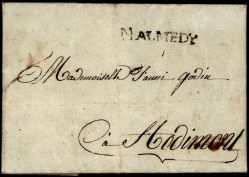 MALMEDY
Mademoiselle Fanni Godin
à Hodimont